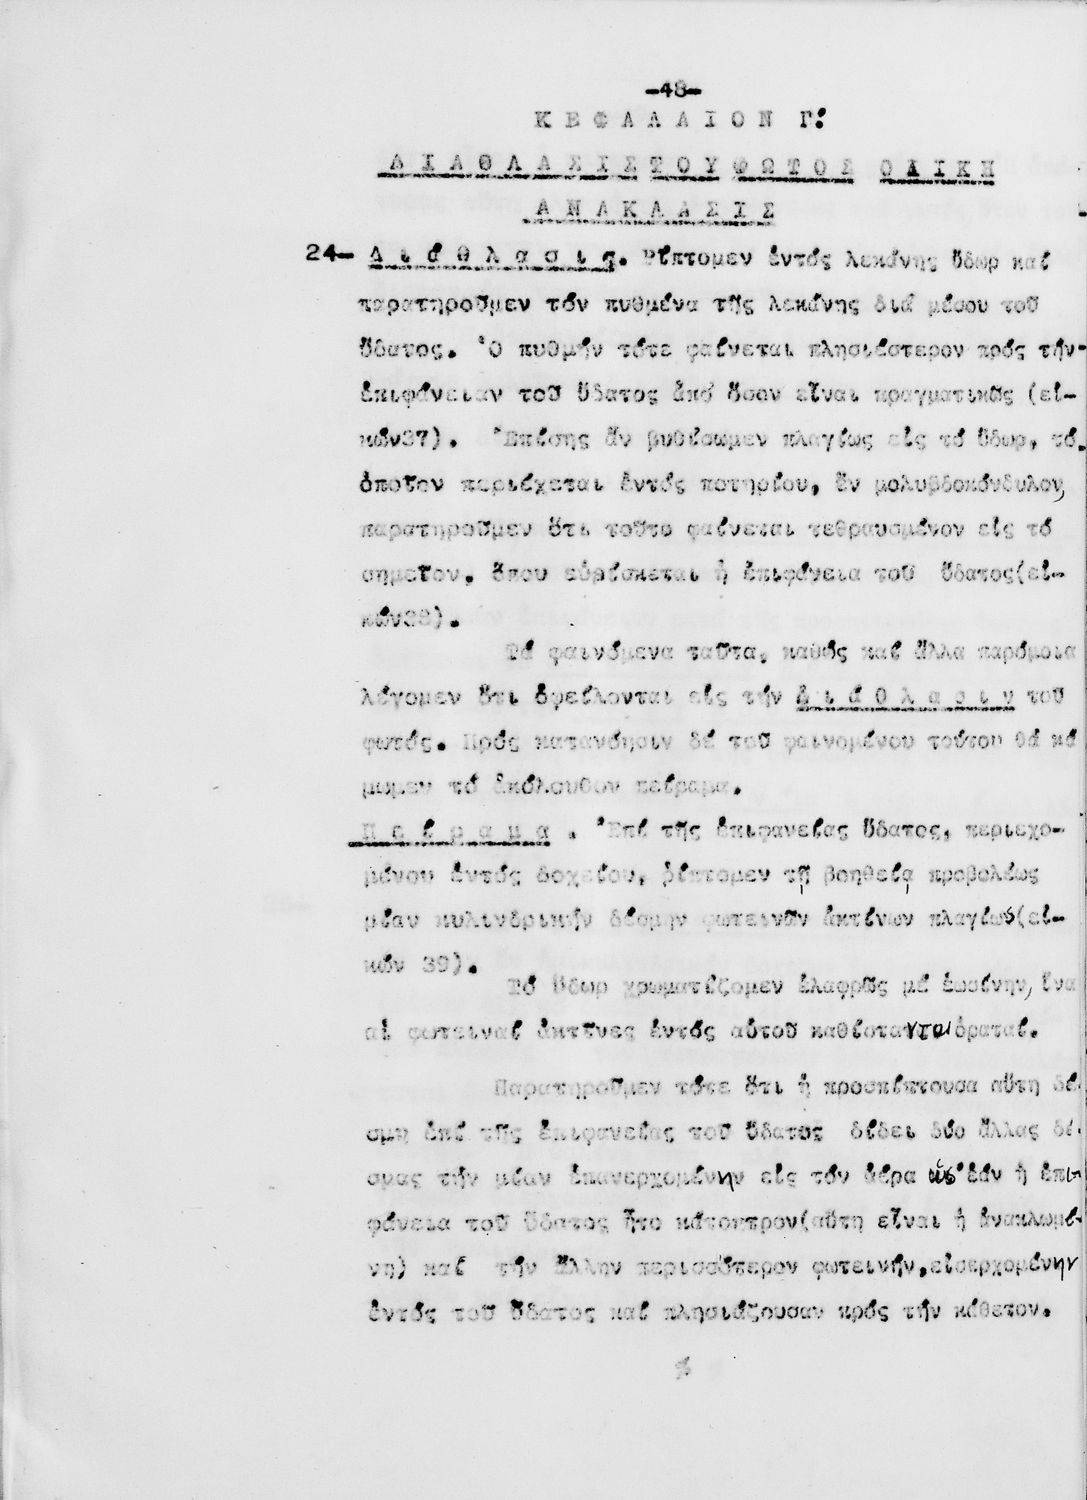 -48-
ΚΕΦΑΛΑΙΟΝ Γ:
ΔΙΑΘΛΑΣΙΣ ΤΟΥ ΦΩΤΟΣ ΟΛΙΚΗ
ΑΝΑΚΛΑΣΙΣ
24- Διάθλασις. Ρίπτομεν ἐντός λεκάνης ὕδωρ καί
παρατηροῦμεν τόν πυθμένα τῆς λεκάνης διά μέσου τοῦ
ὕδατος. Ὁ πυθμήν τότε φαίνεται πλησιέστερον πρός τήν
ἐπιφάνειαν τοῦ ὕδατος ἀπό ὅσον εἶναι πραγματικῶς (εἰ-
κών37). Ἐπίσης ἄν βυθίσωμεν πλαγίως εἰς τό ὕδωρ, τό
ὁποῖον περιέχεται ἐντός ποτηρίου, ἕν μολυβδοκόνδυλον,
παρατηροῦμεν ὅτι τοῦτο φαίνεται τεθραυσμένον εἰς τό
σημεῖον, ὅπου εὑρίσκεται ἡ ἐπιφάνεια τοῦ ὕδατος(εἰ-
κών38).
Τά φαινόμενα ταῦτα, καθώς καί ἄλλα παρόμοια
λέγομεν ὅτι ὀφείλονται εἰς τήν Διάθλασιν τοῦ
φωτός. Πρός κατανόησιν δέ τοῦ φαινομένου τούτου θά κά
μωμεν τό ἀκόλουθον πείραμα.
Πείραμα . Ἐπί τῆς ἐπιφανείας ὕδατος, περιεχο-
μένου ἐντός δοχείου, ῥίπτομεν τῇ βοηθείᾳ προβολέως
μίαν κυλινδρικήν δέσμην φωτεινῶν ἀκτίνων πλαγίως(εἰ-
κών 39).
Τό ὕδωρ χρωματίζομεν ἐλαφρῶς μέ ἐωσίνην, ἵνα
αἱ φωτειναί ἀκτῖνες ἐντός αὐτοῦ καθίστανται ὁραταί.
Παρατηροῦμεν τότε ὅτι ἡ προσπίπτουσα αὕτη δέ
σμη ἐπί τῆς ἐπιφανείας τοῦ ὕδατος δίδει δύο ἄλλας δέ
σμας τήν μίαν ἐπανερχομένην εἰς τόν ἀέρα ὡς ἐάν ἡ ἐπι-
φάνεια τοῦ ὕδατος ἦτο κάτοπτρον(αὕτη εἶναι ἡ ἀνακλωμέ-
νη) καί τήν ἄλλην περισσότερον φωτεινήν,εἰσερχομένην
ἐντός τοῦ ὕδατος καί πλησιάζουσαν πρός τήν κάθετον.